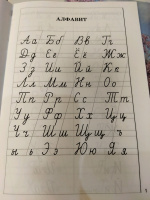 АЛФАВИТ
Аа Бб Вв Гг
Дд Ее Ёё Жж
Зз Ии Йй Кк
Лл Мм Нн Оо
Пп Рр Сс Тт
Уу Фф Хх Цц
Чч Шш Щщ ъ
ы ь Ээ Юю Яя